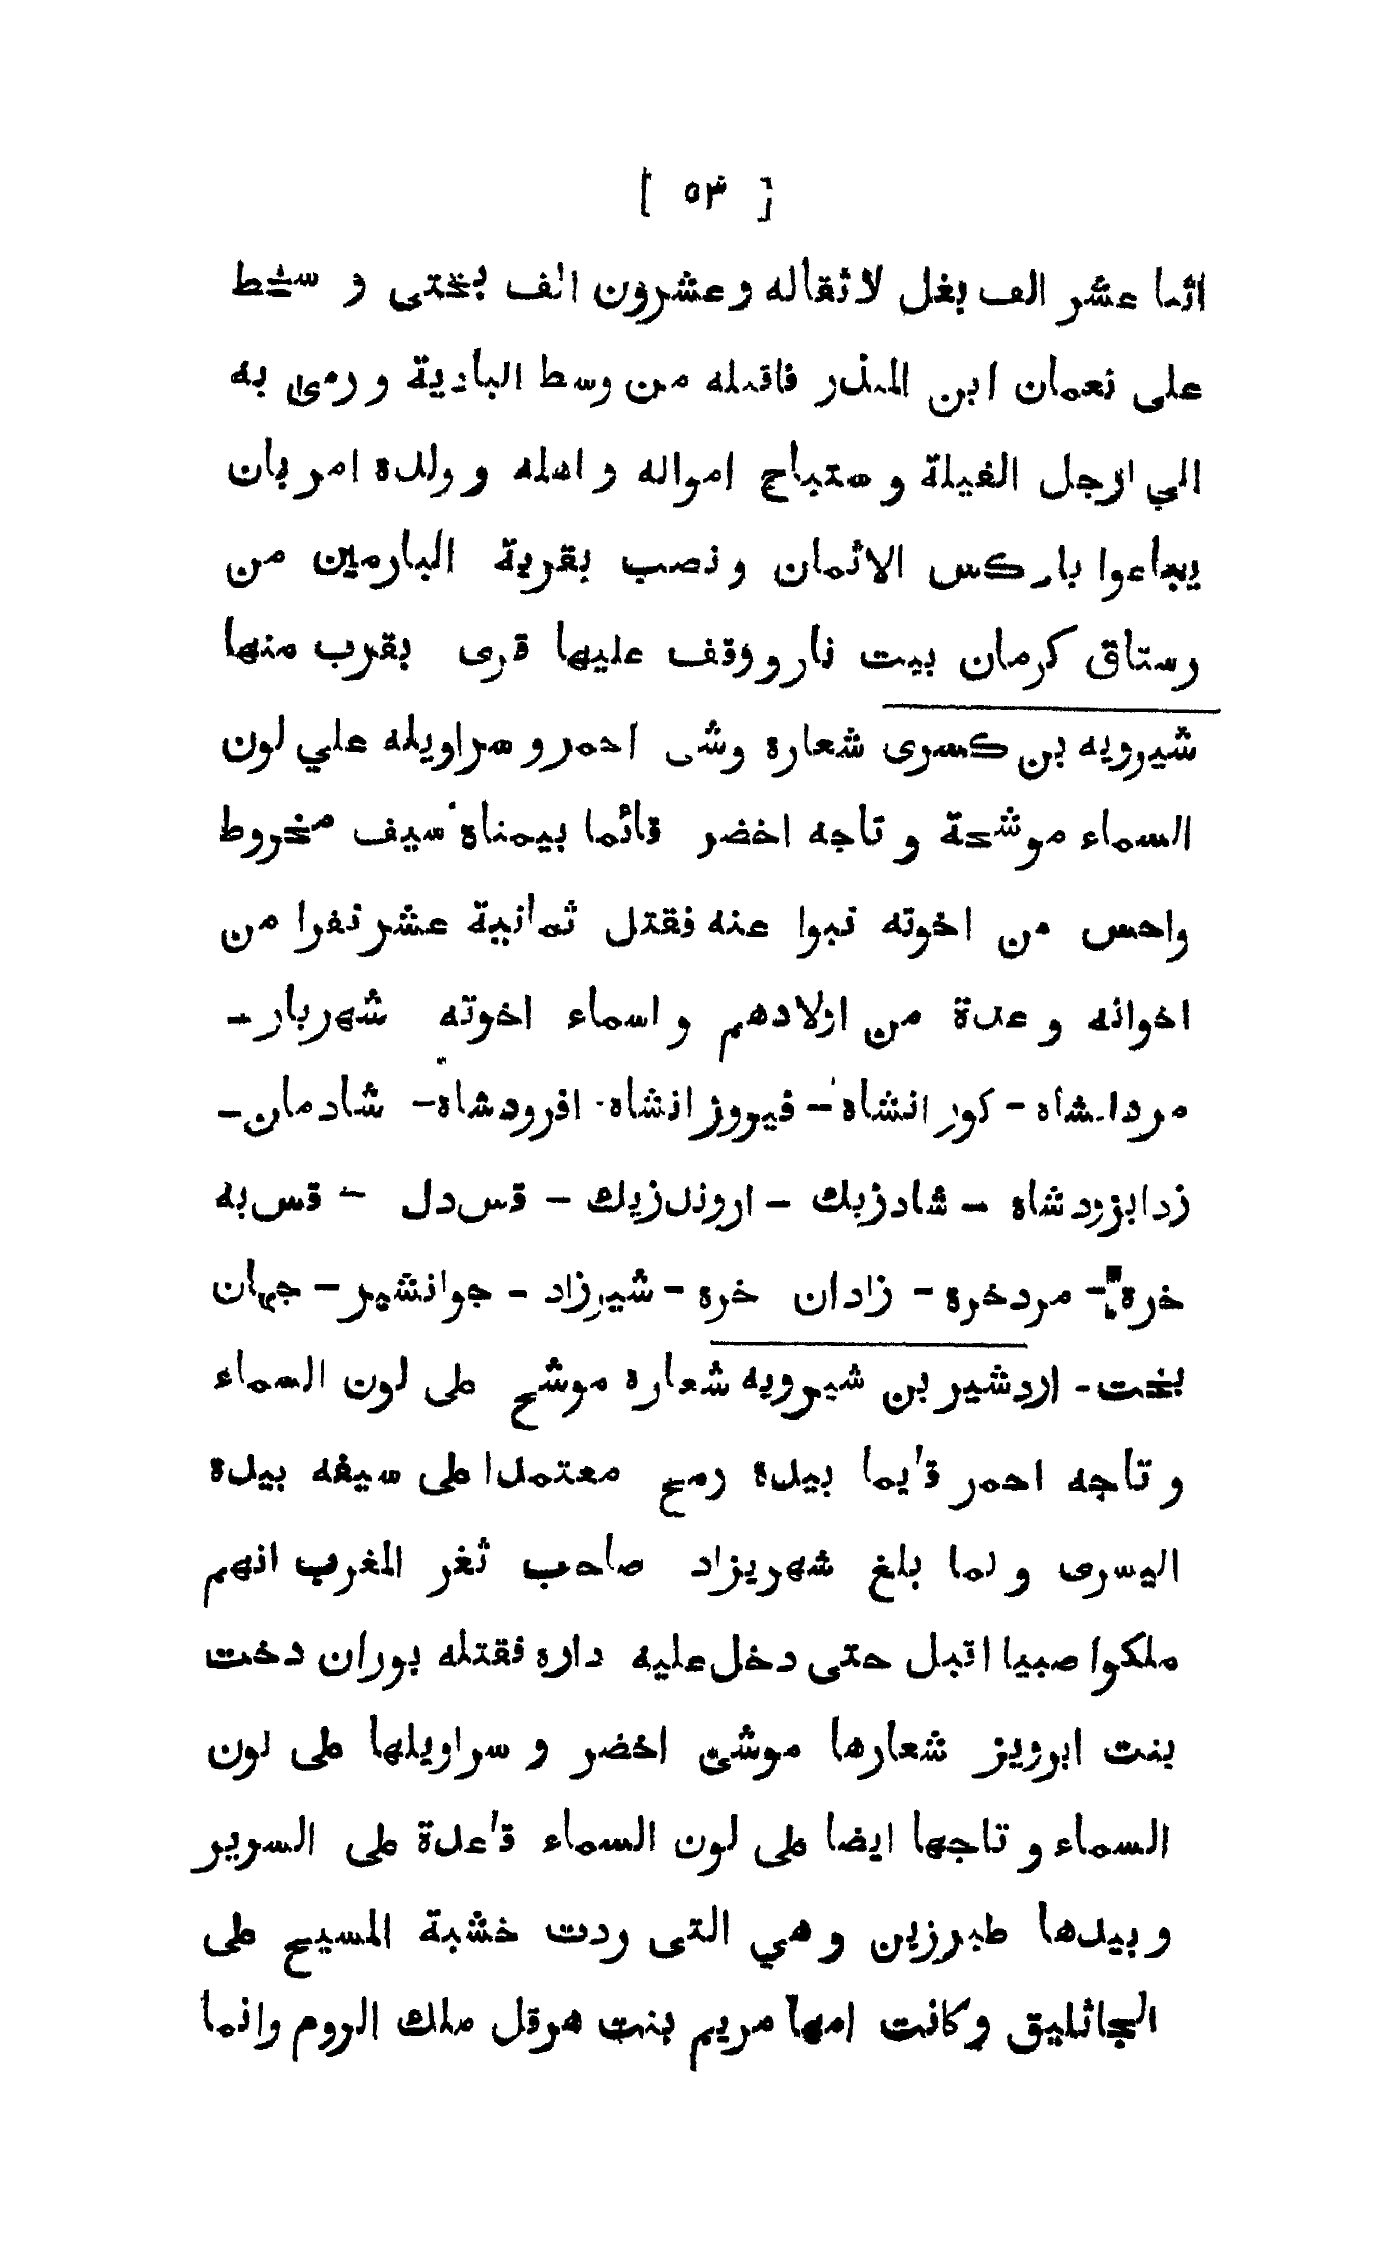 [ ٥٣ ]
اثما عشر الف بغل لاثقاله وعشرون الف بختى و سخط
على نعمان ابن المنذر فاقتله من وسط البادية و رمى به
الي ارجل الفيلة و ستباح امواله و اهله و ولده امر بان
يباعوا باركس الاثمان ونصب بقرية البارمين من
رستاق كرمان بيت نار ووقف عليها قرى بقرب منها
شيرويه بن كسرى شعاره وشى احمر و سراويله علي لون
السماء موشحة و تاجه اخضر قائما بيمناه سيف مخروط
واحس من اخوته نبوا عنه فقتل ثمانية عشر نفرا من
اخوانه و عدة من اولادهم و اسماء اخوته شهربار -
مردانشاه - كورانشاه - فيروزانشاه - افرودشاه - شادمان -
زدابزودشاه - شادزبك - اروندزيك - قس دل - قس به
خره - مردخره - زادان خره - شيرزاد - جوانشير - جهان
بخت - اردشير بن شيرويه شعاره موشح على لون السماء
و تاجه احمر قايما بيده رمح معتمدا على سيفه بيده
اليسرى و لما بلغ شهريزاد صاحب ثغر المغرب انهم
ملكوا صبيا اقبل حتى دخل عليه داره فقتله بوران دخت
بنت ابرويز شعارها موشى اخضر و سراويلها على لون
السماء و تاجها ايضا على لون السماء قاعدة على السرير
و بيدها طبرزين و هي التى ردت خشبة المسيح على
الجاثليق و كانت امها مريم بنت هرقل ملك الروم وانما